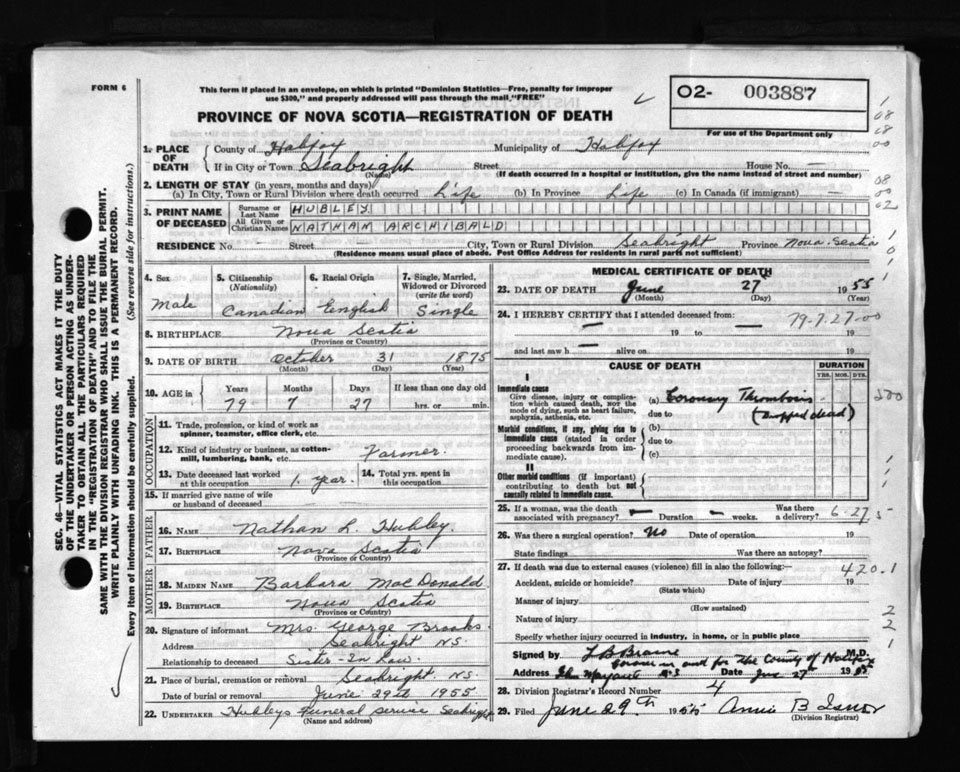 FORM 6
This form if placed in an envelope, on which is printed "Dominion Statistics—Free, penalty for improper
use $300," and properly addressed will pass through the mail, "FREE"
O2- 003887
PROVINCE OF NOVA SCOTIA—REGISTRATION OF DEATH
For use of the Department only
SEC. 46—VITAL STATISTICS ACT MAKES IT THE DUTY
OF THE UNDERTAKER OR PERSON ACTING AS UNDER-
TAKER TO OBTAIN ALL THE PARTICULARS REQUIRED
IN THE "REGISTRATION OF DEATH" AND TO FILE THE
SAME WITH THE DIVISION REGISTRAR WHO SHALL ISSUE THE BURIAL PERMIT.
WRITE PLAINLY WITH UNFADING INK. THIS IS A PERMANENT RECORD.
Every item of information should be carefully supplied. (See reverse side for instructions.)
1. PLACE OF DEATH County of Halifax Municipality of Halifax
If in City or Town Seabright Street House No. —
(Name) (If death occurred in a hospital or institution, give the name instead of street and number)
2. LENGTH OF STAY (in years, months and days)
(a) In City, Town or Rural Division where death occurred Life (b) In Province Life (c) In Canada (if immigrant) —
3. PRINT NAME OF DECEASED Surname or Last Name HUBLEY
All Given or Christian Names NATHAN ARCHIBALD
RESIDENCE No. — Street — City, Town or Rural Division Seabright Province Nova Scotia
(Residence means usual place of abode. Post Office Address for residents in rural parts not sufficient)
4. Sex Male
5. Citizenship (Nationality) Canadian
6. Racial Origin English
7. Single, Married, Widowed or Divorced (write the word) Single
8. BIRTHPLACE Nova Scotia
(Province or Country)
9. DATE OF BIRTH October 31 1875
(Month) (Day) (Year)
10. AGE in Years 79 Months 7 Days 27 If less than one day old hrs. or min.
OCCUPATION
11. Trade, profession, or kind of work as spinner, teamster, office clerk, etc.
12. Kind of industry or business, as cotton-mill, lumbering, bank, etc. Farmer.
13. Date deceased last worked at this occupation 1 year. 14. Total yrs. spent in this occupation
15. If married give name of wife or husband of deceased
FATHER
16. NAME Nathan L. Hubley.
17. BIRTHPLACE Nova Scotia
(Province or Country)
MOTHER
18. MAIDEN NAME Barbara MacDonald
19. BIRTHPLACE Nova Scotia
(Province or Country)
20. Signature of informant Mrs. George Brooks.
Address Seabright N.S.
Relationship to deceased Sister-In Law.
21. Place of burial, cremation or removal Seabright. N.S.
Date of burial or removal June 29th 1955
22. UNDERTAKER Hubleys funeral service Seabright
(Name and address)
MEDICAL CERTIFICATE OF DEATH
23. DATE OF DEATH June 27 1955
(Month) (Day) (Year)
24. I HEREBY CERTIFY that I attended deceased from: 79-7-27-00
— 19 to — 19
and last saw h — alive on — 19
CAUSE OF DEATH DURATION
YRS. MOS. DYS.
I
Immediate cause
Give disease, injury or complication which caused death, not the mode of dying, such as heart failure, asphyxia, asthenia, etc.
(a) Coronary Thrombosis
due to (dropped dead)
Morbid conditions, if any, giving rise to immediate cause (stated in order proceeding backwards from immediate cause).
(b)
due to
(c)
II
Other morbid conditions (if important) contributing to death but not causally related to immediate cause.
25. If a woman, was the death associated with pregnancy? — Duration — weeks. Was there a delivery? 6-27-5
26. Was there a surgical operation? No Date of operation 19
State findings Was there an autopsy?
27. If death was due to external causes (violence) fill in also the following:— 420.1
Accident, suicide or homicide? Date of injury 19
(State which)
Manner of injury
(How sustained)
Nature of injury
Specify whether injury occurred in industry, in home, or in public place
Signed by M.D.
Coroner in and for The County of Halifax
Address Date June 27th 1955
28. Division Registrar's Record Number 4
29. Filed June 29th 1955 Annie B
(Division Registrar)